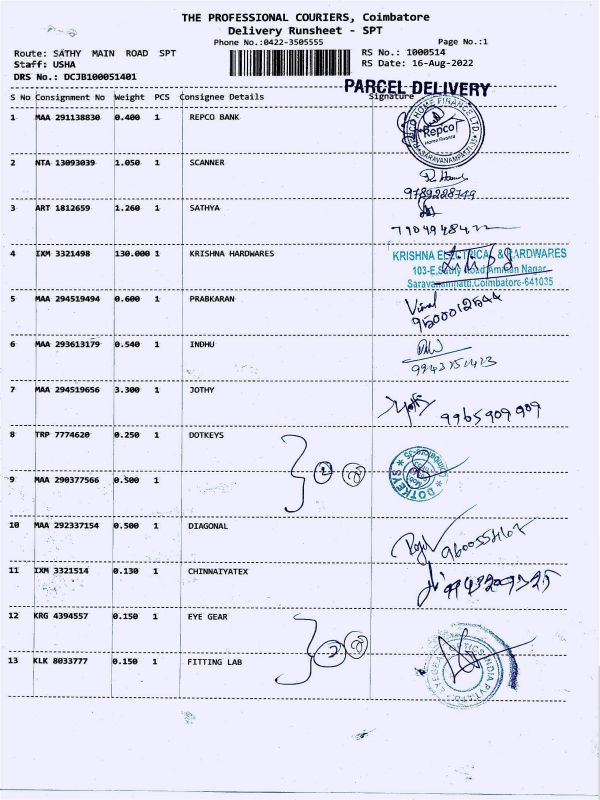 THE PROFESSIONAL COURIERS, Coimbatore
Delivery Runsheet - SPT
Phone No.:0422-3505555 Page No.:1
Route: SATHY MAIN ROAD SPT RS No.: 1000514
Staff: USHA RS Date: 16-Aug-2022
DRS No.: DCJB100051401
PARCEL DELIVERY
S No Consignment No Weight PCS Consignee Details Signature
1 MAA 291138830 0.400 1 REPCO BANK
REPCO HOME FINANCE LTD. SARAVANAMPATTI
Repco
Home Finance
2 NTA 13093039 1.050 1 SCANNER
9789228749
3 ART 1812659 1.260 1 SATHYA
4 IXM 3321498 130.000 1 KRISHNA HARDWARES
KRISHNA ELECTRICAL & HARDWARES
103-E, Sathy Road, Amman Nagar,
Saravanampatti, Coimbatore-641035
5 MAA 294519494 0.600 1 PRABKARAN
Vimal
9500012544
6 MAA 293613179 0.540 1 INDHU
7 MAA 294519656 3.300 1 JOTHY
9965909909
8 TRP 7774620 0.250 1 DOTKEYS
2
DOTKEYS
9 MAA 290377566 0.500 1
10 MAA 292337154 0.500 1 DIAGONAL
11 IXM 3321514 0.130 1 CHINNAIYATEX
12 KRG 4394557 0.150 1 EYE GEAR
2
13 KLK 8033777 0.150 1 FITTING LAB